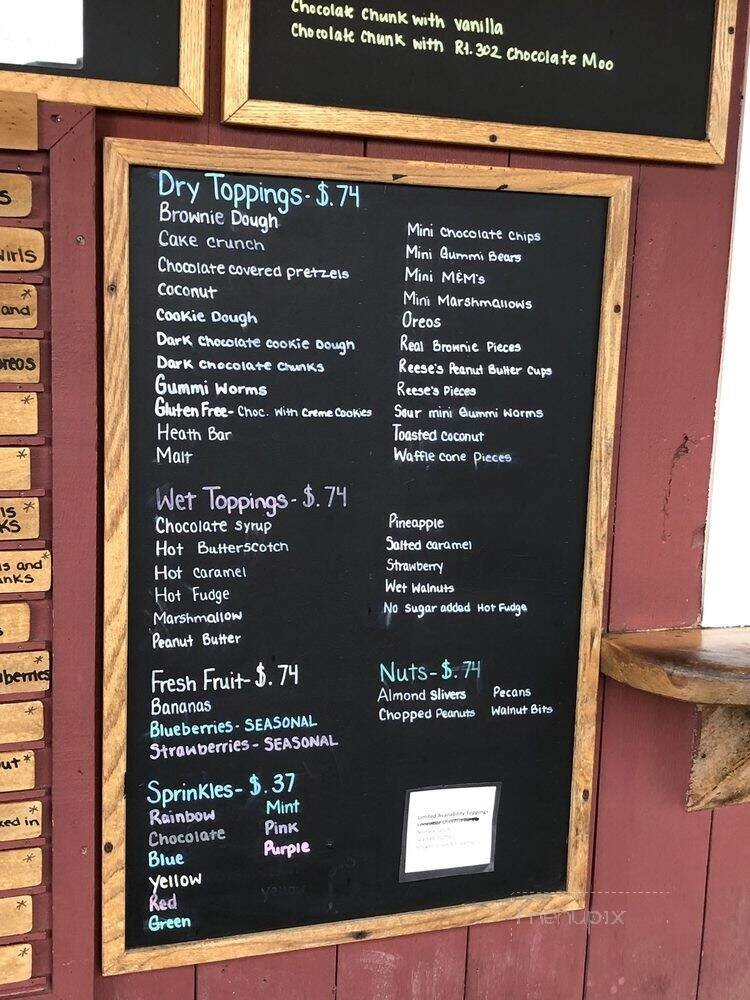 Chocolate Chunk with Vanilla
Chocolate Chunk with Rt. 302 Chocolate Moo
Dry Toppings - $.74
Brownie Dough
Cake crunch
Chocolate covered pretzels
Coconut
Cookie Dough
Dark Chocolate cookie Dough
Dark chocolate chunks
Gummi Worms
Gluten Free - Choc. with Creme Cookies
Heath Bar
Malt
Mini Chocolate Chips
Mini Gummi Bears
Mini M&M's
Mini Marshmallows
Oreos
Real Brownie Pieces
Reese's Peanut Butter Cups
Reese's Pieces
Sour mini Gummi worms
Toasted coconut
Waffle cone pieces
Wet Toppings - $.74
Chocolate Syrup
Hot Butterscotch
Hot caramel
Hot Fudge
Marshmallow
Peanut Butter
Pineapple
Salted caramel
Strawberry
Wet Walnuts
No sugar added Hot Fudge
Fresh Fruit - $.74
Bananas
Blueberries - SEASONAL
Strawberries - SEASONAL
Nuts - $.74
Almond Slivers
Chopped Peanuts
Pecans
Walnut Bits
Sprinkles - $.37
Rainbow
Chocolate
Blue
Yellow
Red
Green
Mint
Pink
Purple
Limited Availability Toppings
menupix